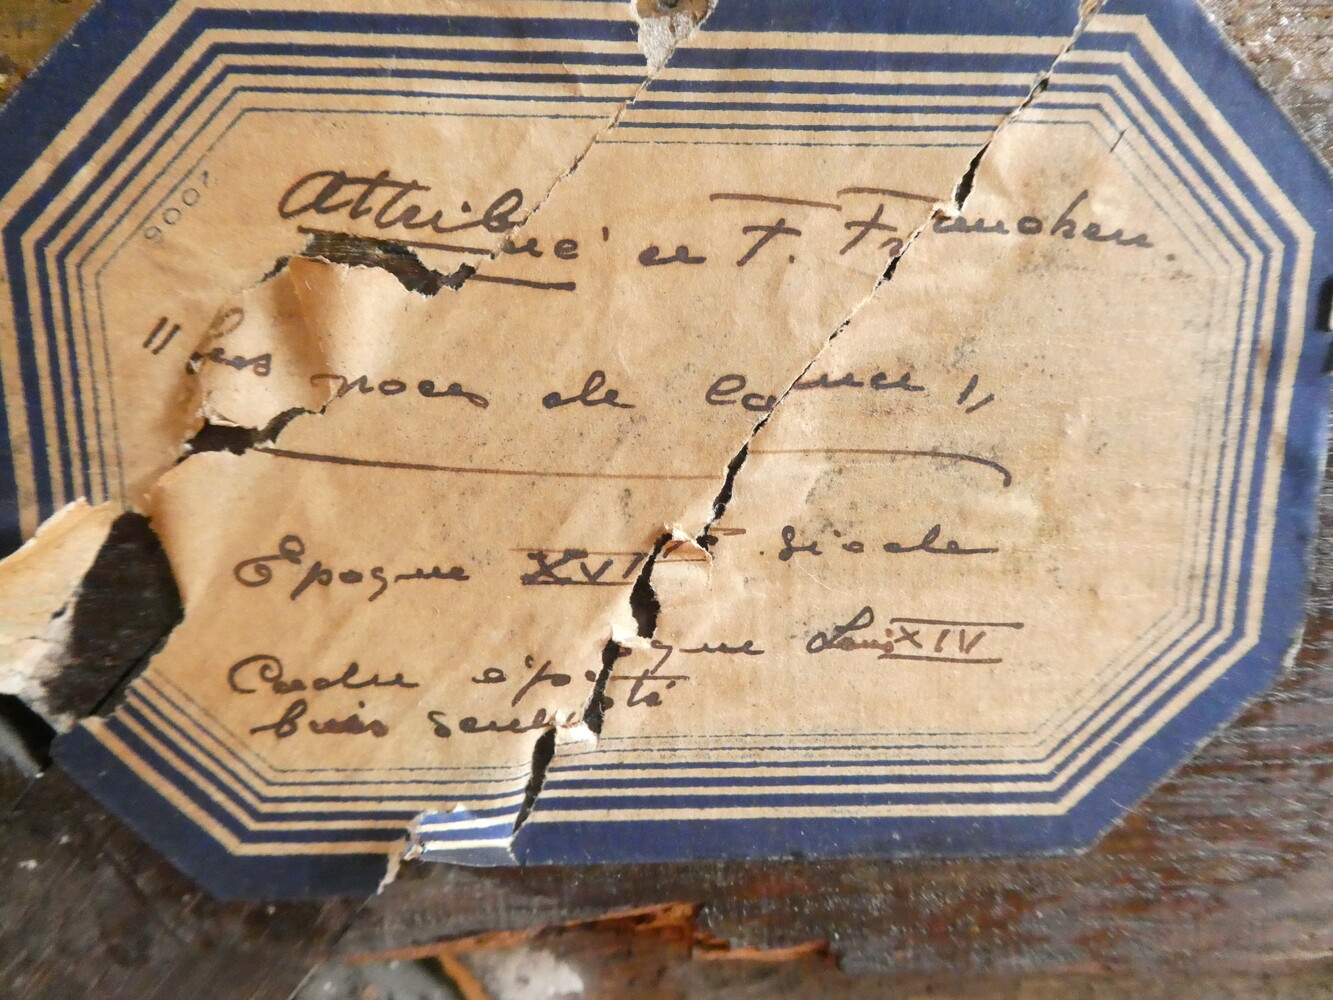 2006
Attribué a F. Francken.
"Les noces de Cana"
Epoque XVIIe siècle
Cadre époque Louis XIV
buis sculpté